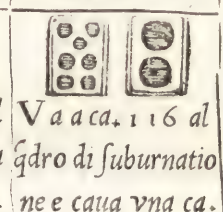 V a a ca. 1 1 6 al
q̃dro di ſuburnatio
ne e caua vna ca.